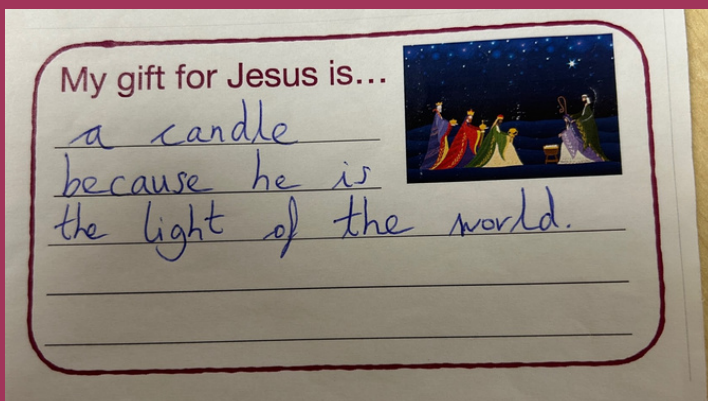 My gift for Jesus is...
a candle
because he is
the light of the world.